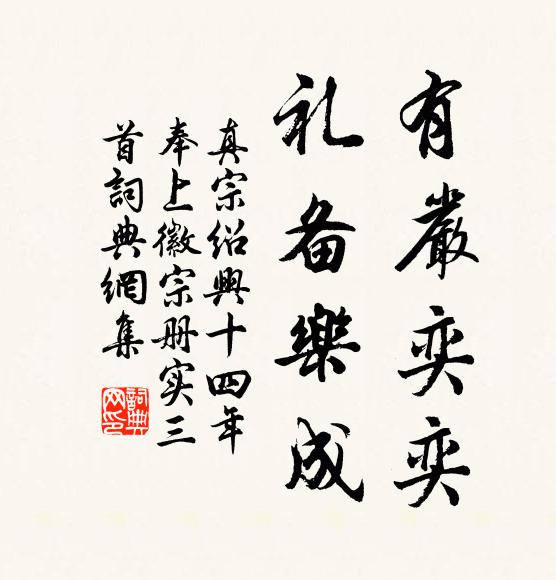 有嚴奕奕
礼备樂成
真宗绍興十四年
奉上徽宗册实三
首詞典網集
詞典
网印